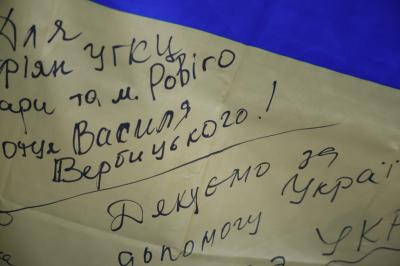 Для
ріян УГКЦ
ари та м. Ровіго
отця Василя
Вербицького!
Дякуємо за
допомогу Украї
УКР